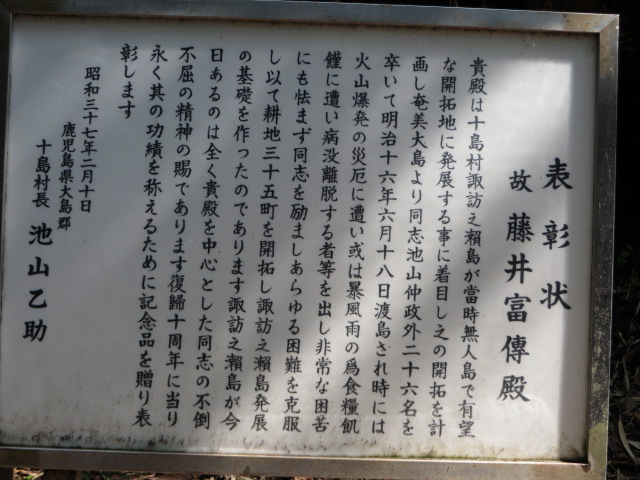 表彰状
故 藤井富傳殿
貴殿は十島村諏訪之瀬島が當時無人島で有望
な開拓地に発展する事に着目し之の開拓を計
画し奄美大島より同志池山仲政外二十六名を
卒いて明治十六年六月十八日渡島され時には
火山爆発の災厄に遭い或は暴風雨の爲食糧飢
饉に遭い病没離脱する者等を出し非常な困苦
にも怯まず同志を励ましあらゆる困難を克服
し以て耕地三十五町を開拓し諏訪之瀬島発展
の基礎を作ったのであります諏訪之瀬島が今
日あるのは全く貴殿を中心とした同志の不倒
不屈の精神の賜であります復歸十周年に当り
永く其の功績を称えるために記念品を贈り表
彰します
昭和三十七年二月十日
鹿児島県大島郡
十島村長 池山乙助